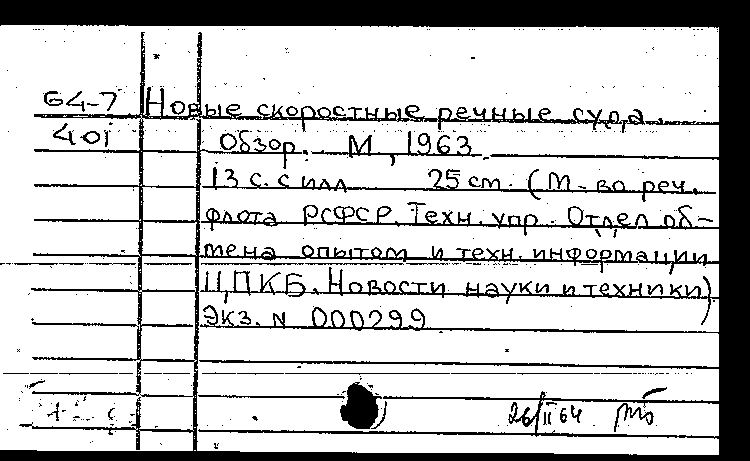 64-7 Новые скоростные речные суда.
401 Обзор. М, 1963.
13 с. с илл 25 cm. (М-во реч.
флота РСФСР. Техн. упр. Отдел об-
мена опытом и техн. информации
ЦПКБ. Новости науки и техники)
Экз. N 000299
26/II 64